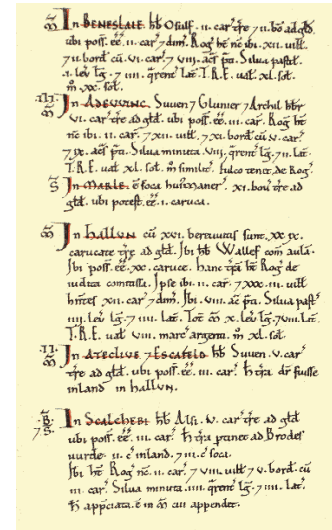 M̃ In BENESLAIE. h̃b Osulf. ii. car̃ t̃re 7 ii. boṽ ad gl̃d.
ubi poss̃. eẽ. ii. car̃ 7 dim̃. Rog̃ h̃t nc̃ ibi. xii. uill̃
7 ii. bord̃ cũ. vi. car̃. 7 viii. ac̃s p̃ti. Silua past̃.
.i. leṽ lg̃. 7 .iiii. q̃rent̃ lat̃. T.R.E. ual̃. xl. sol̃.
m̊ xx. sol̃.
.III. M̃ In ADEWINC. Suuen 7 Glunier 7 Archil h̃br̃
vi. car̃ t̃re ad gl̃d. ubi poss̃. eẽ. iii. car̃. Rog̃ h̃t
nc̃ ibi. ii. car̃. 7 xii. uill̃. 7 xi. bord̃ cũ v. car̃.
7 ix. ac̃s p̃ti. Silua minuta. viii. q̃rent̃ lg̃. 7 ii. lat̃.
T.R.E. ual̃. xl. sol̃. m̊ similit̃. fulco tenet de Rog̃.
S̃ In MARLE. ẽ soca hui' maner̃. xi. boũ t̃re ad
gl̃d. ubi potest̃. eẽ. i. caruca.
M̃ In HALLUN. cũ xvi. bereuuitis sunt. xxix.
carucate t̃re ad gl̃d. Ibi h̃b Wallef com̃ aulã.
Ibi poss̃. eẽ. xx. caruce. hanc t̃rã h̃t Rog̃ de
iudita comitissa. Ipse ibi. ii. car̃ 7 xxx. iii. uill̃
h̃ntes xii. car̃ 7 dim̃. Ibi. viii. ac̃ p̃ti. Silua past̃
iiii. leṽ lg̃. 7 iiii. lat̃. Tot̃ m̃ x. leṽ lg̃. 7 viii. lat̃.
T.R.E. ual̃. viii. marc̃ argenti. m̊ xl. sol̃.
.II. M̃ In ATECLIVE 7 ESCAFELD h̃b Suuen. v. car̃
t̃re ad gl̃d. ubi poss̃. eẽ. iii. car̃. H̃ t̃ra dr̃ fuisse
inland in hallun.
B̃. 7 S̃. In SCALCHEBI h̃b Alsi. v. car̃ t̃re ad gl̃d
ubi poss̃. eẽ. iii. car̃. H̃ t̃ra ptinet ad Brodes
uurde. ii. ẽ inland. 7 iii. ẽ soca.
Ibi h̃t Rog̃ nc̃. ii. car̃ 7 viii. uill̃ 7 v. bord̃. cũ
iii. car̃. Silua minuta. iiii. q̃rent̃ lg̃. 7 iiii. lat̃.
H̃ app̃ciata ẽ in M̃ cui appendet.